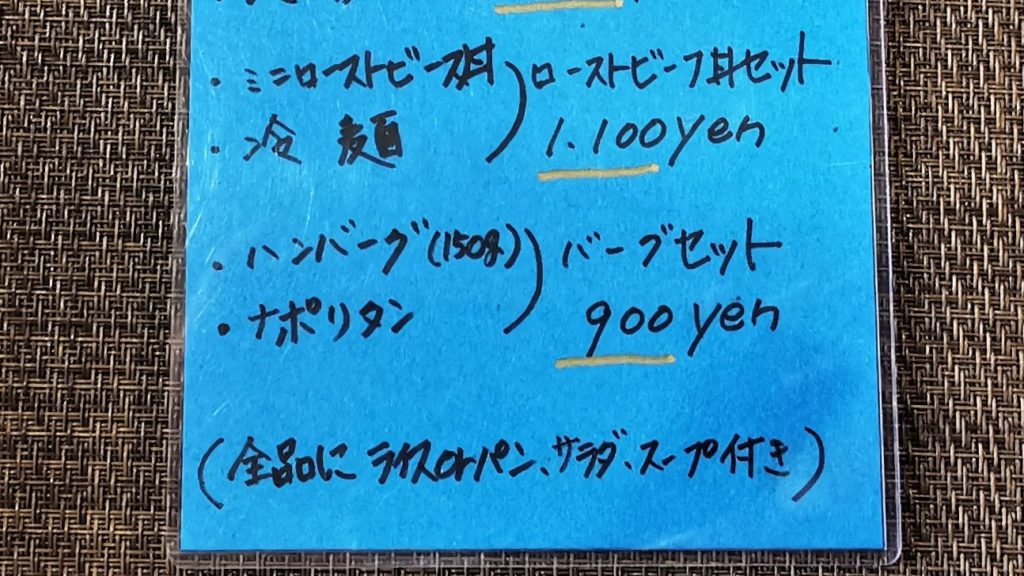 ・ミニローストビーフ丼）ローストビーフ丼セット
・冷 麺 1.100yen
・ハンバーグ(150g)）バーグセット
・ナポリタン 900yen
(全品にライスorパン、サラダ、スープ付き)